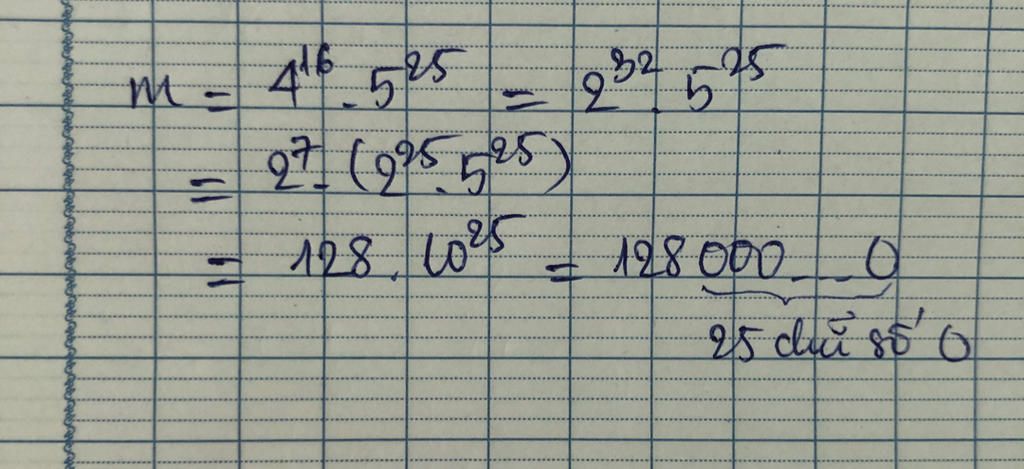 m = 4¹⁶ . 5²⁵ = 2³² . 5²⁵
= 2⁷ . (2²⁵ . 5²⁵)
= 128 . 10²⁵ = 128000...0
25 chữ số 0